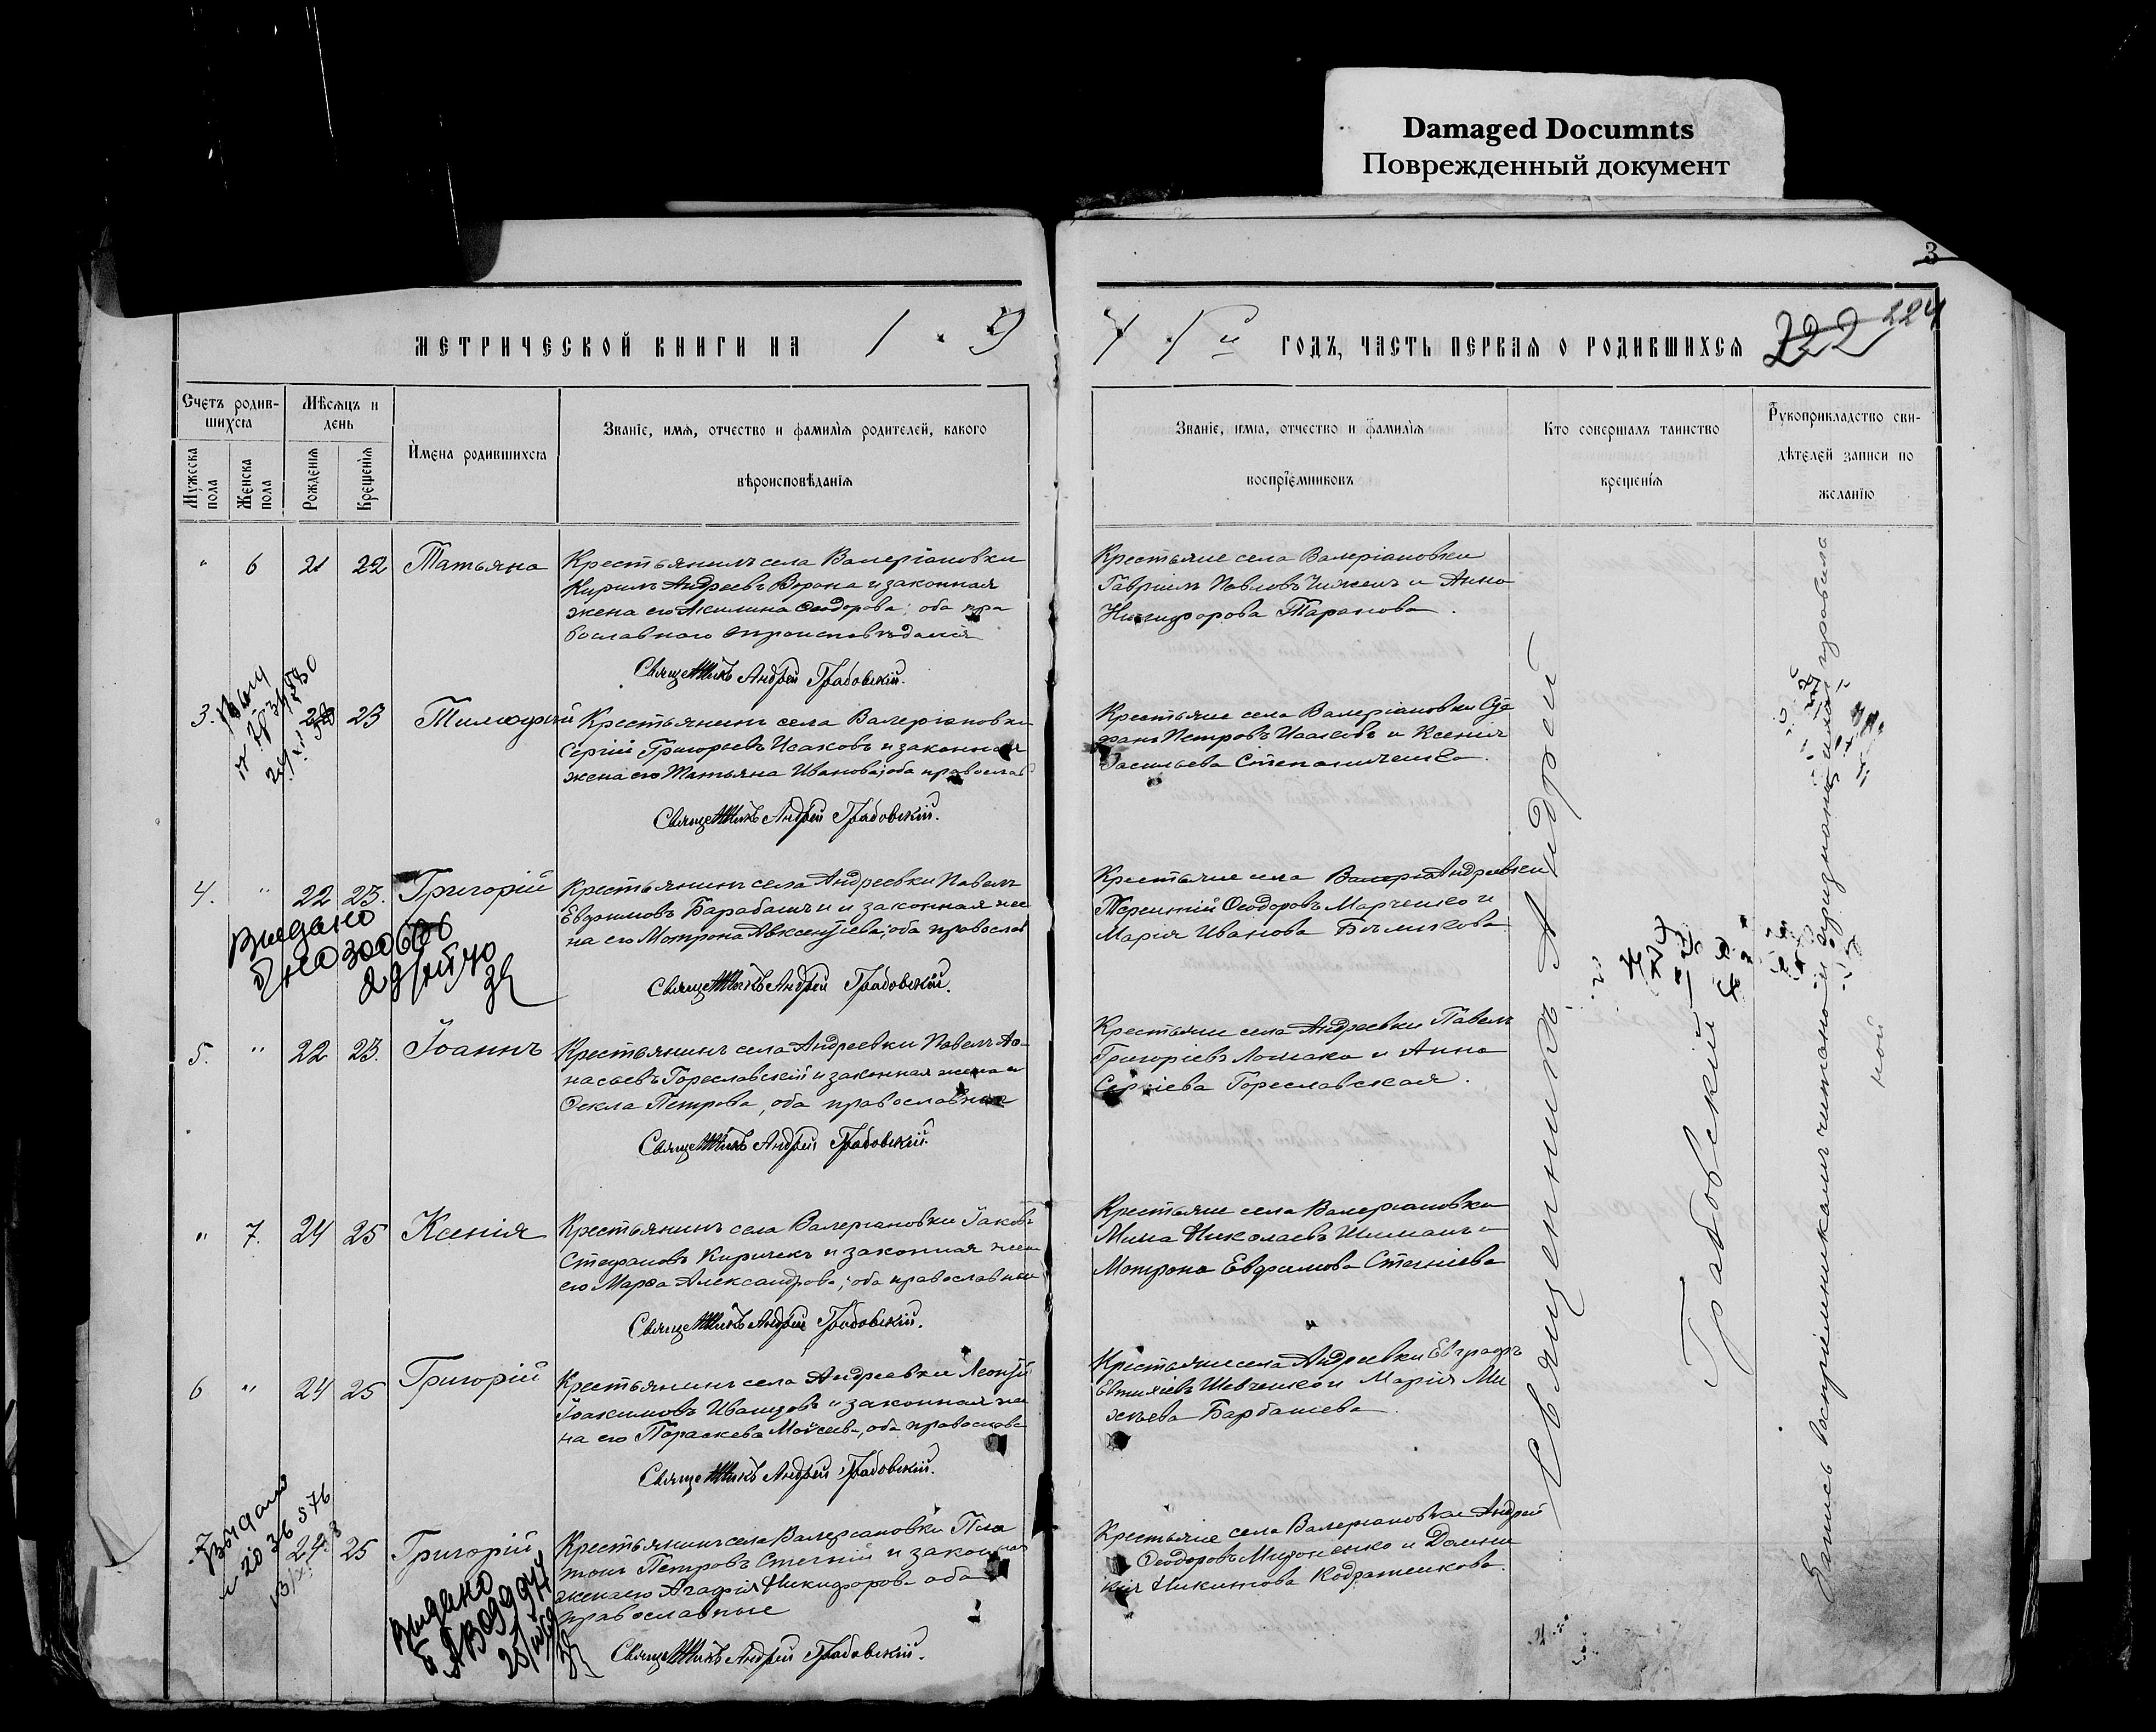 Damaged Documnts
Поврежденный документ
3
МЕТРИЧЕСКОЙ КНИГИ НА 1 9
1 1го ГОДЪ, ЧАСТЬ ПЕРВАЯ О РОДИВШИХСЯ
222 224
Счетъ родив-
шихся
Мужеска пола
Женска пола
Мѣсяцъ и
день
Рожденія
Крещенія
Имена родившихся
Званіе, имя, отчество и фамилія родителей, какого
вѣроисповѣданія
Званіе, имя, отчество и фамилія
воспріемниковъ
Кто совершалъ таинство
крещенія
Рукоприкладство сви-
дѣтелей записи по
желанію
" 6 21 22 Татьяна
Крестьянинъ села Валеріановки
Кирилъ Андреевъ Ворона и законная
жена его Акилина Ѳеодорова; оба пра
вославнаго вѣроисповѣданія
Священникъ Андрей Грабовскій.
Крестьяне села Валеріановки
Гавріилъ Павловъ и Анна
Никифорова Таранова.
3. 23 Тимофей
Крестьянинъ села Валеріановки
Сергій Григорьевъ Исаковъ и законная
жена его Татьяна Иванова; оба православ
Священникъ Андрей Грабовскій.
Крестьяне села Валеріановки Сте
фанъ Петровъ Исаковъ и Ксенія
Васильева Степаниченко.
4. " 22 23. Григорій
Крестьянинъ села Андреевки Павелъ
Евфимовъ Барабашъ и законная же
на его Мотрона Авксентіева; оба православ
Священникъ Андрей Грабовскій.
Крестьяне села Андреевки
Терентій Ѳеодоровъ Марченко и
Марія Иванова
Видано
5. " 22 23. Іоаннъ
Крестьянинъ села Андреевки Павелъ Аѳа-
насьевъ Гореславскій и законная жена его
Ѳекла Петрова, оба православные
Священникъ Андрей Грабовскій.
Крестьяне села Андреевки Павелъ
Григоріевъ Ломака и Анна
Сергіева Гореславская.
" 7. 24 25 Ксенія
Крестьянинъ села Валеріановки Іаковъ
Стефановъ Киричекъ и законная жена
его Марѳа Александрова; оба православные
Священникъ Андрей Грабовскій.
Крестьяне села Валеріановки
Мина Николаевъ и
Мотрона Евфимова Стегніева
6 " 24 25 Григорій
Крестьянинъ села Андреевки Леонтій
Іоакимовъ Иванцовъ и законная же
на его Параскева Моисеева, оба православ
Священникъ Андрей Грабовскій.
Крестьяне села Андреевки Евграфъ
Евтихіевъ Шевченко и Марія Ми
хѣева Барбашева.
7 24. 25 Григорій
Крестьянинъ села Валеріановки Пла
тонъ Петровъ Стегній и законная
жена его Агафія Никифорова оба
православные
Священникъ Андрей Грабовскій.
Крестьяне села Валеріановки Андрей
Ѳеодоровъ Мироненко и Домни
кія Никитова Кодратенкова.
Видано
Видано
Священникъ Андрей
Грабовскій
Запись воспріемникамъ читана и признана ими правиль
ной